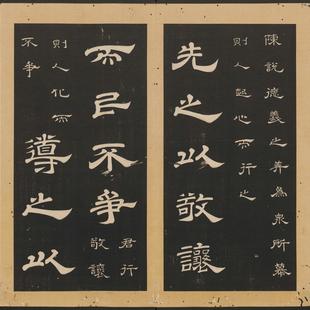 陳說德義之美為衆所慕
則人起心而行之
先之以敬讓
而民不爭
君行
敬讓
則人化而
不爭
導之以